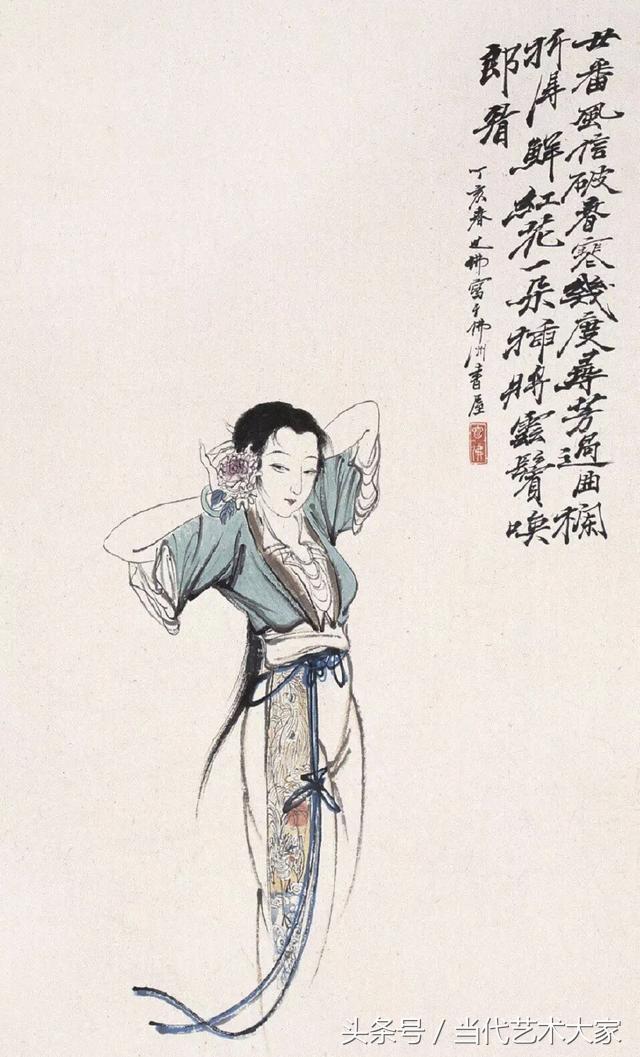 廿番風信破春寒幾度尋芳過曲欄
折得鮮紅花一朵插將雲鬢喚
郎看
丁亥春世佛寫于佛洲書屋
头条号 / 当代艺术大家